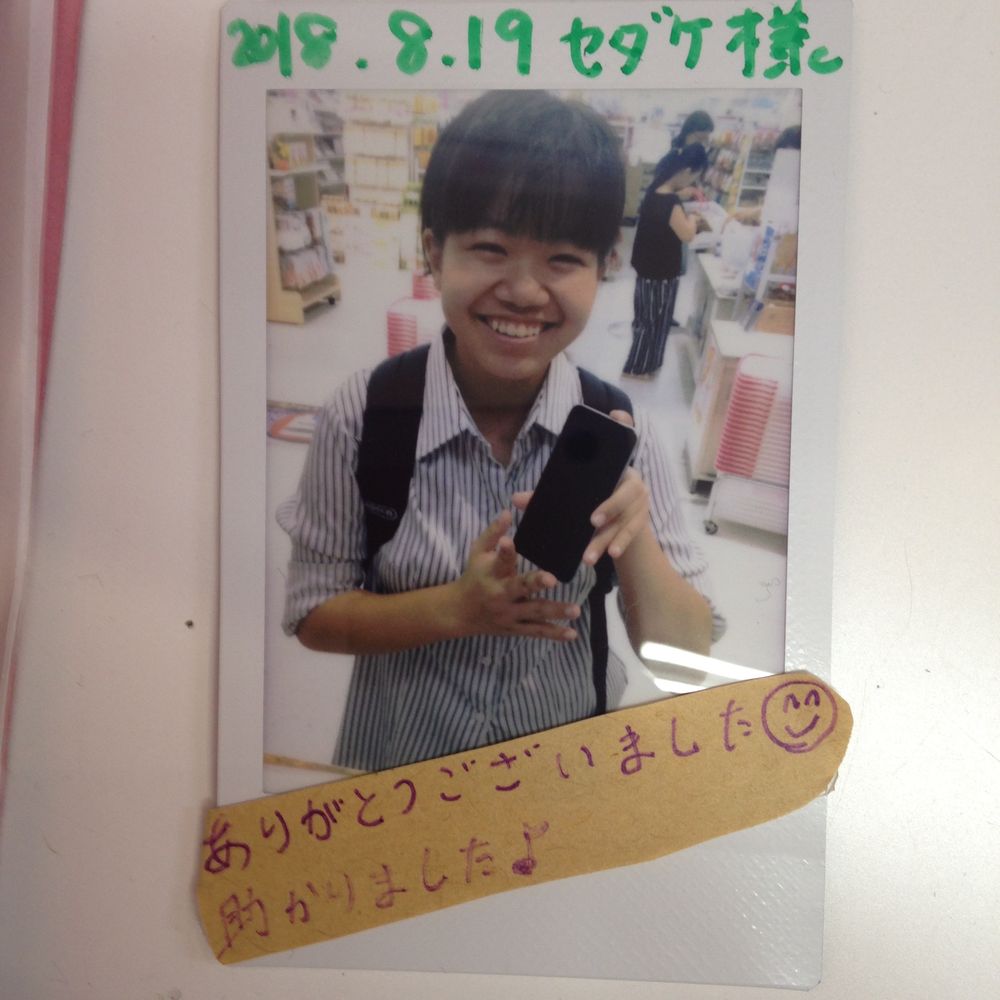 2018.8.19 セダケ様
ありがとうございました
助かりました♪